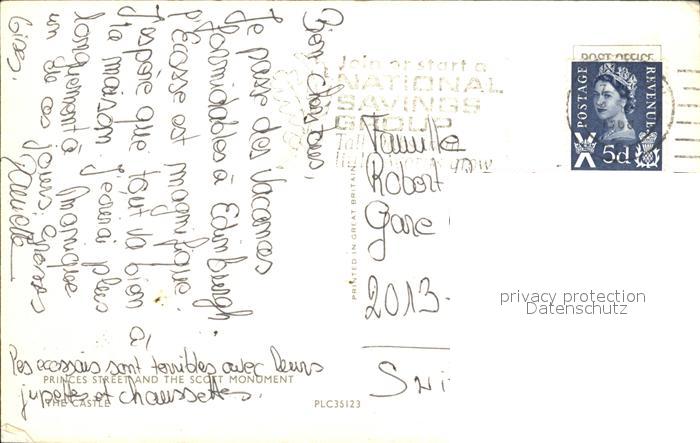 Bien chers tous,
Je passe des vacances
formidables à Edinburgh.
L'Ecosse est magnifique.
J'espère que tout va bien à
la maison. J'écrirai plus
longuement à Monique
un de ces jours. Grosses
bises,
Danielle
Les écossais sont terribles avec leurs
jupettes et chaussettes.
PRINCES STREET AND THE SCOTT MONUMENT
THE CASTLE
PLC35123
PRINTED IN GREAT BRITAIN
Join or start a
NATIONAL
SAVINGS
GROUP
POST OFFICE
POSTAGE
REVENUE
5d
Famille
Robert
Gare
2013-
Sui
privacy protection
Datenschutz